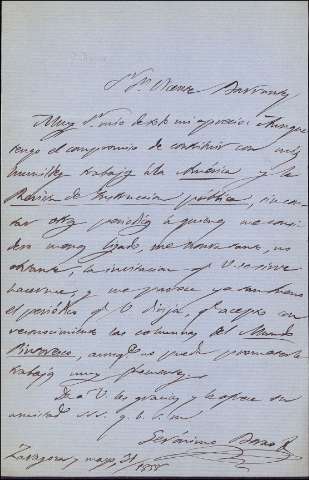 Sr. Dn. Vicente Barrantes
Muy Sr. mio de toda mi aprecio: Aunque
tengo el compromiso de contribuir con mis
humildes trabajos á la América y la
Revista de Instruccion pública, sin con-
tar otros periódicos á quienes me consi-
dero menos ligado, me honra tanto, no
obstante, la invitacion qe. V. se sirve
hacerme, y me parece ya tan bueno
el periódico qe. V. dirije, qe. acepto con
reconocimiento las columnas del Mundo
Pintoresco, aunqe. no puedo prometerle
trabajos muy frecuentes.
Da á V. las gracias y le ofrece su
amistad s.s.s. q. b. s. m.
Gerónimo Borao
Zaragoza y mayo, 21
1858